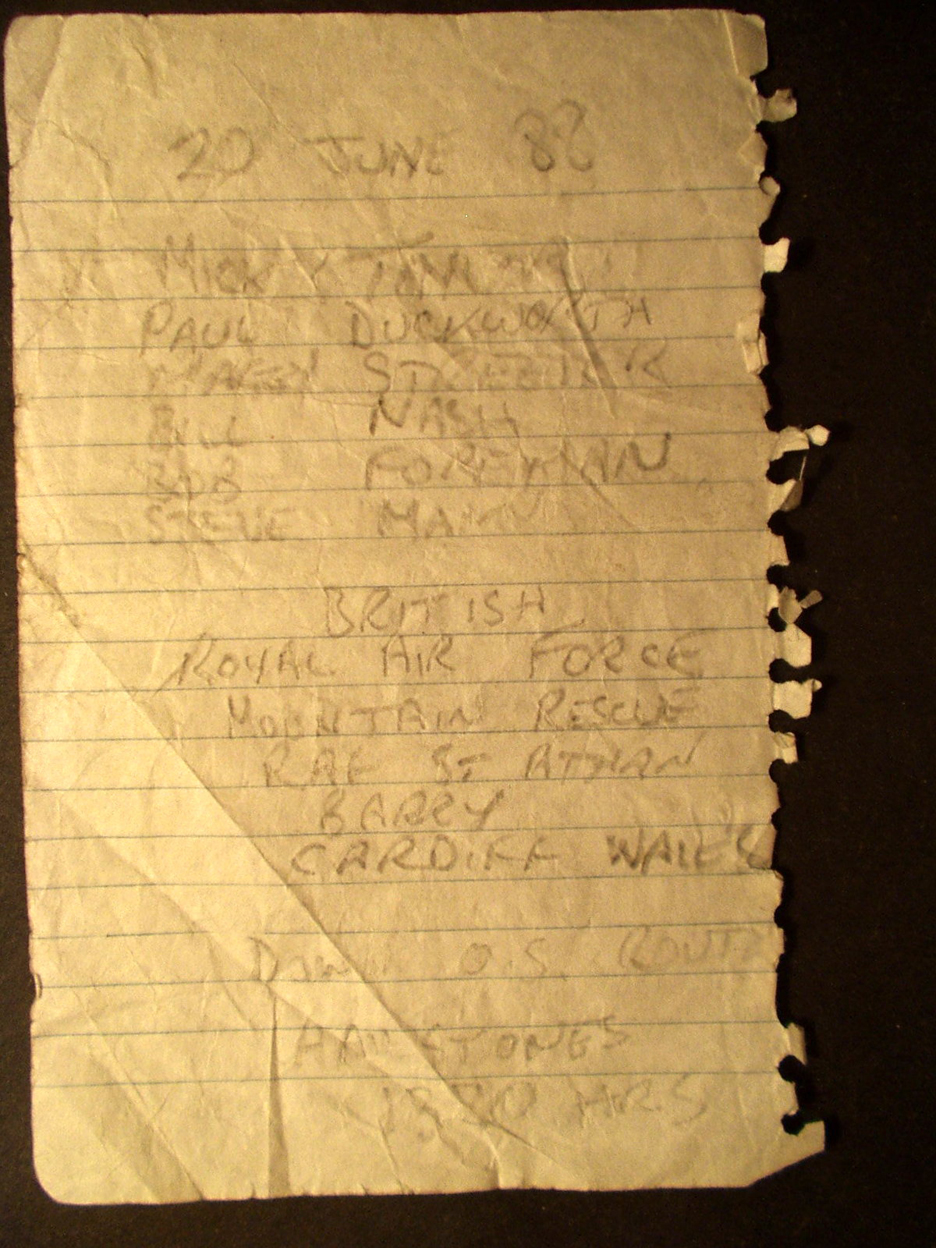 20 JUNE 88
MICKY
PAUL DUCKWORTH
STREETER
BILL NASH
BOB FOREMAN
STEVE
BRITISH
ROYAL AIR FORCE
MOUNTAIN RESCUE
RAF ST ATHAN
BARRY
CARDIFF WALES
O.S. ROUTE
HAILSTONES
HRS